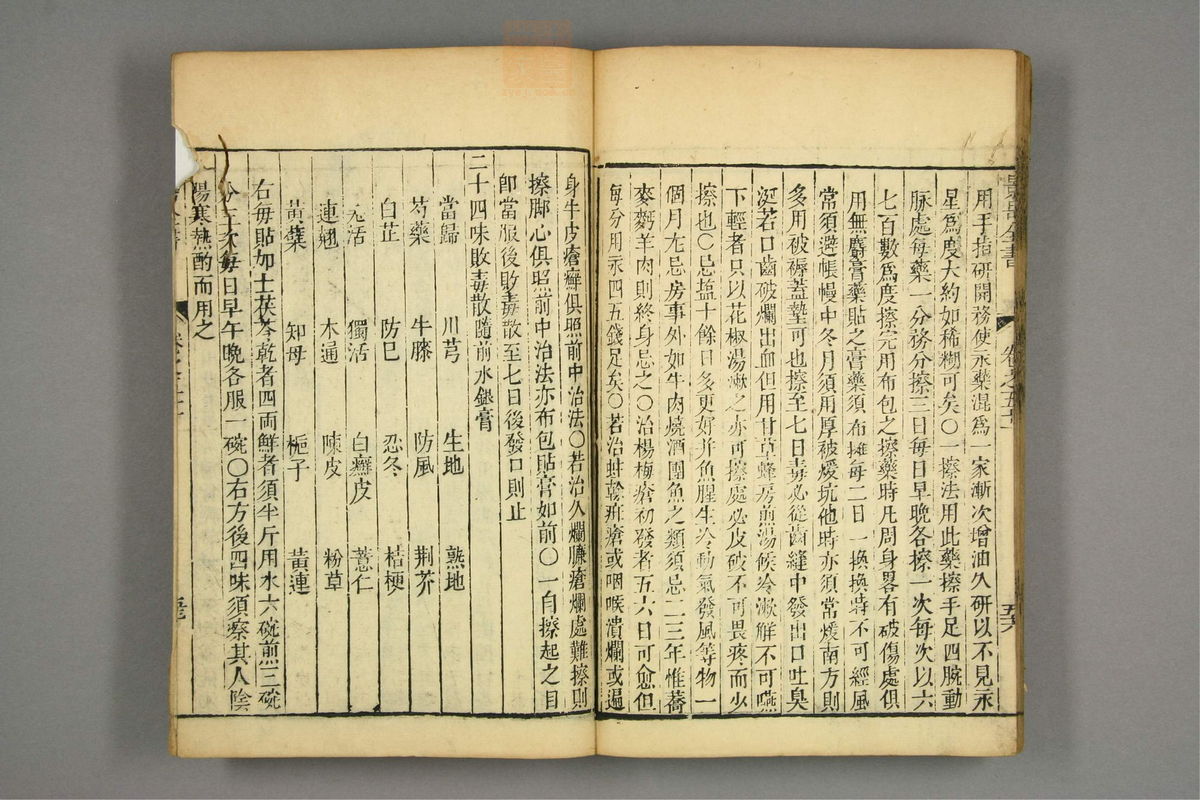 用手指研開務使汞藥混爲一家漸次增油久研以不見汞
星爲度大約如稀糊可矣〇一擦法用此藥擦手足四腕動
脉處每藥一分務分擦三日每日早晚各擦一次每次以六
七百數爲度擦完用布包之擦藥時凡周身畧有破傷處俱
用無麝膏藥貼之膏藥須布攤每二日一換換時不可經風
常須避帳幔中冬月須用厚被煖坑他時亦須常煖南方則
多用被褥蓋墊可也擦至七日毒必從齒縫中發出口吐臭
涎若口齒破爛出血但用甘草蜂房煎湯候冷漱解不可嚥
下輕者只以花椒湯漱之亦可擦處必皮破不可畏疼而少
擦也〇忌塩十餘日多更好并魚腥生冷動氣發風等物一
個月尤忌房事外如牛肉燒酒團魚之類須忌二三年惟蕎
麥麪羊肉則終身忌之〇治楊梅瘡初發者五六日可愈但
每分用汞四五錢足矣〇若治蛀幹疳瘡或咽喉潰爛或遍
身牛皮瘡癬俱照前中治法〇若治久爛臁瘡爛處難擦則
擦脚心俱照前中治法亦布包貼膏如前〇一自擦起之日
卽當服後敗毒散至七日後發口則止
二十四味敗毒散隨前水銀膏
當歸 川芎 生地 熟地
芍藥 牛膝 防風 荆芥
白芷 防巳 忍冬 桔梗
羌活 獨活 白癬皮 薏仁
連翹 木通 陳皮 粉草
黃蘗 知母 梔子 黃連
右每貼加土茯苓乾者四両鮮者須半斤用水六碗煎三碗
分三次每日早午晚各服一碗〇右方後四味須察其人陰
陽寒熱酌而用之